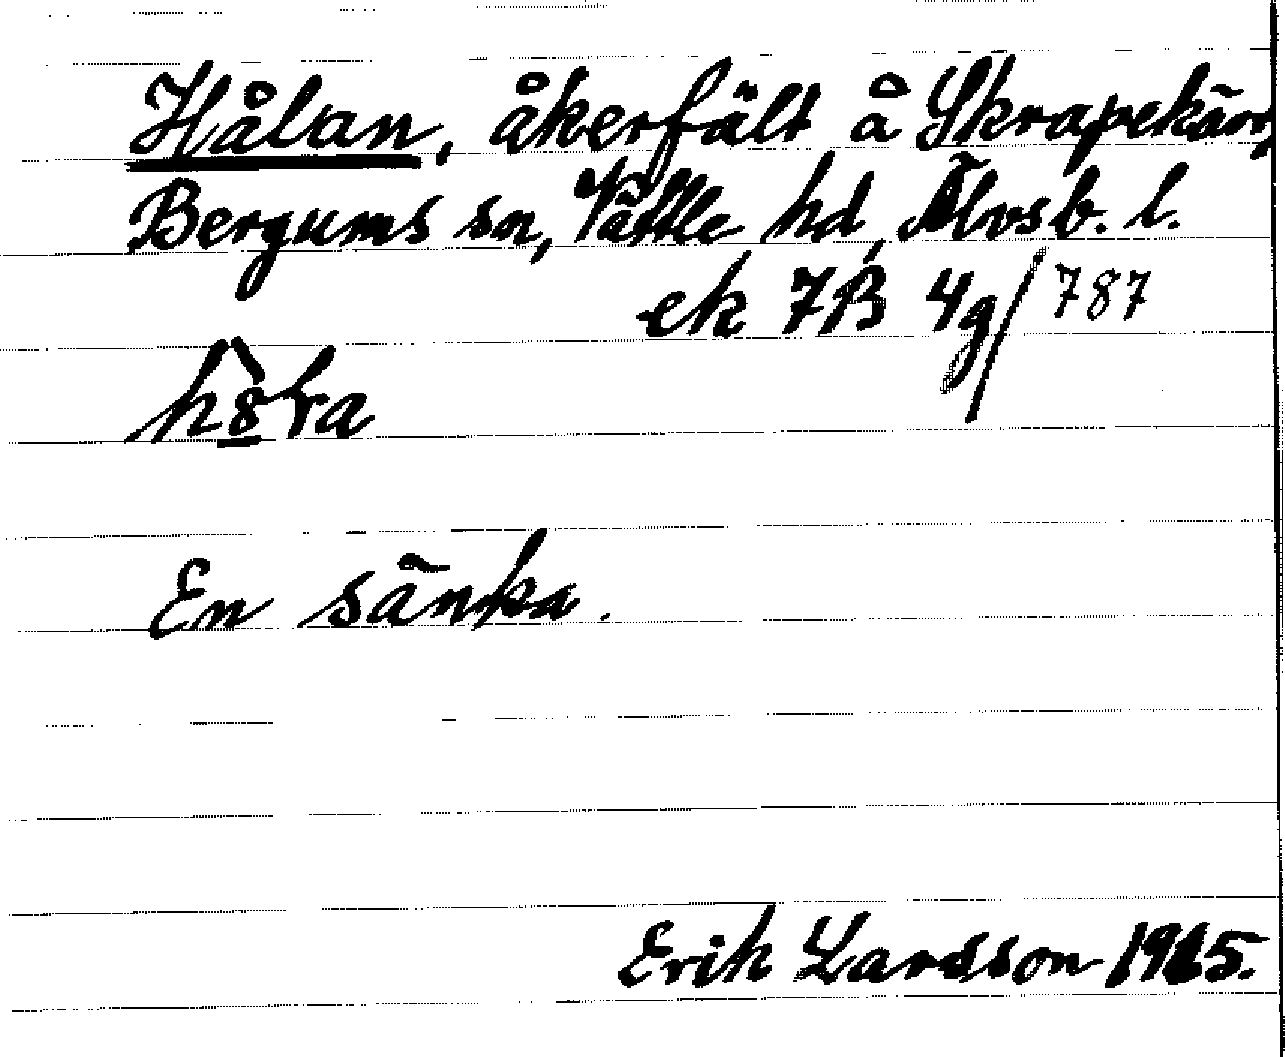 Hålan, åkerfält å Skrapekärr,
Bergums sn, Vättle hd, Älvsb. l.
ek 7B 4g/787
En sänka.
Erik Larsson 1965.